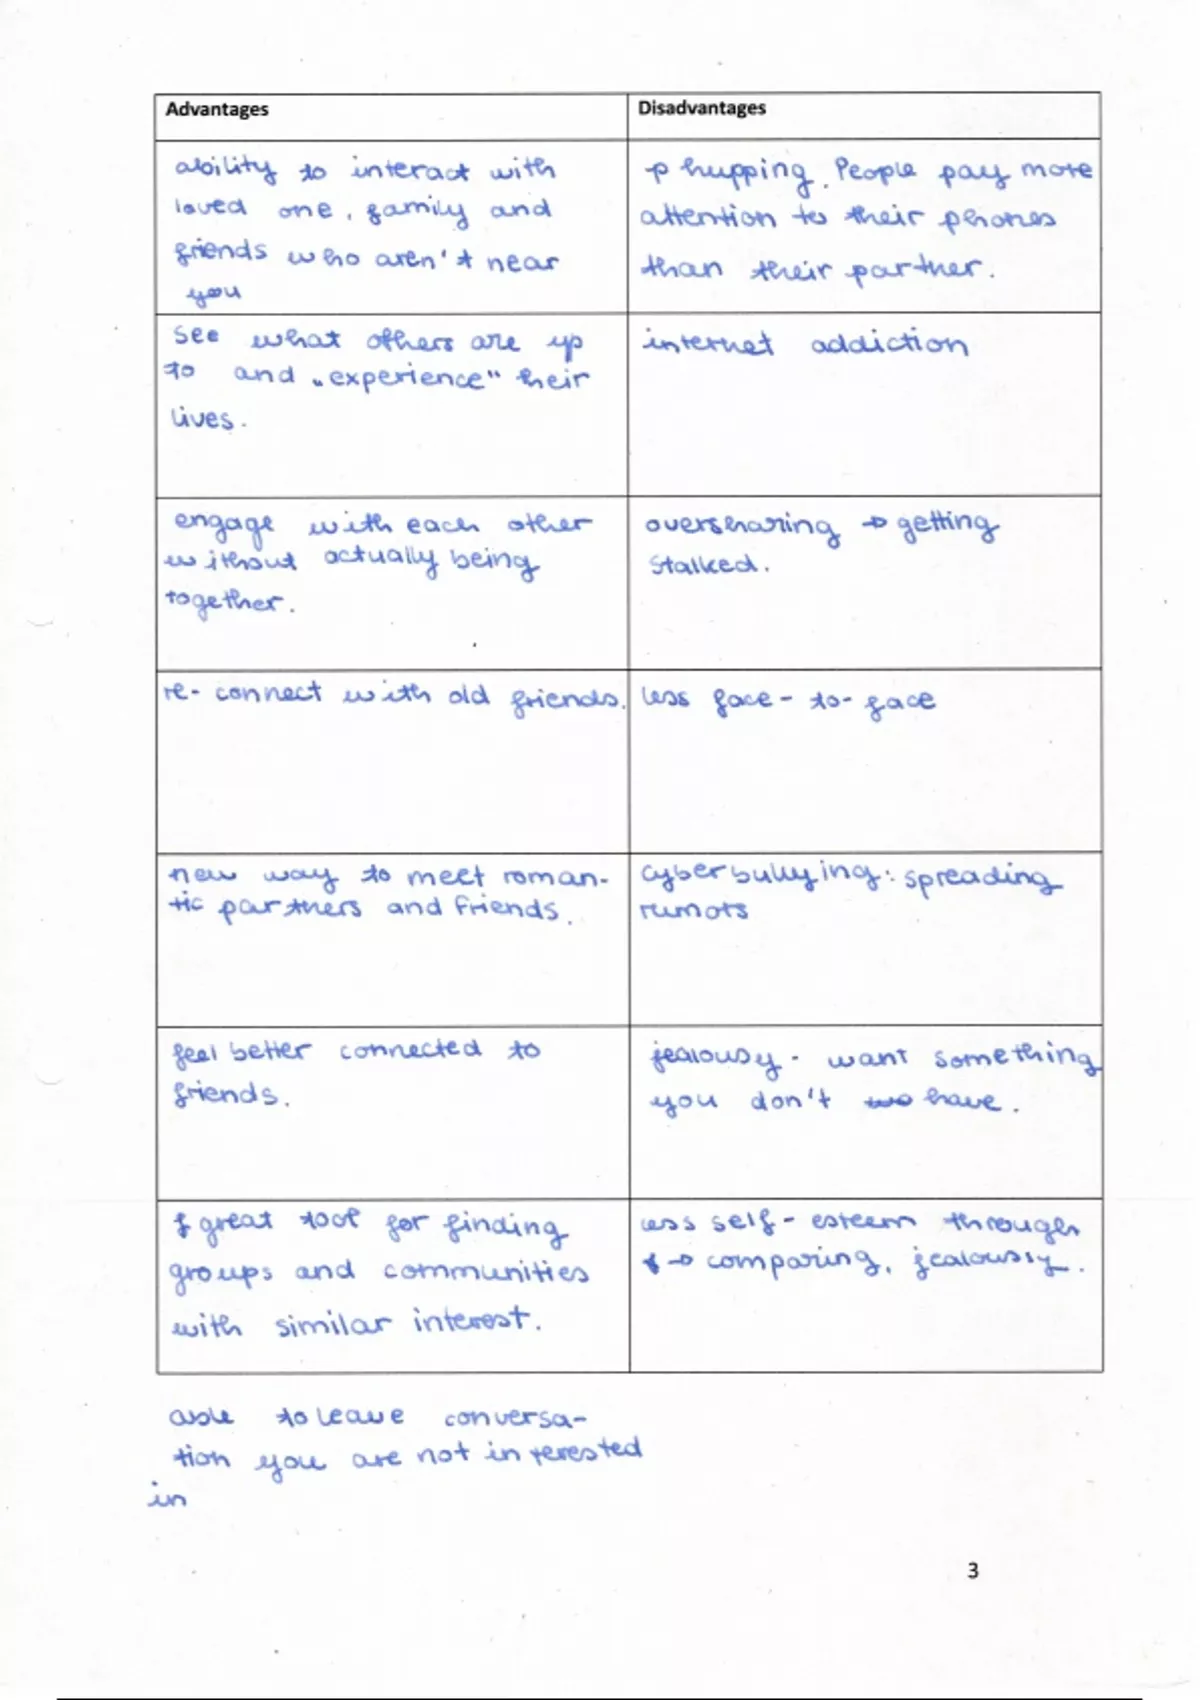 Advantages
Disadvantages
ability to interact with
loved one, family and
friends who aren't near
you
phupping. People pay more
attention to their phones
than their partner.
see what others are up
to and „experience" their
lives.
internet addiction
engage with each other
without actually being
together.
oversharing → getting
stalked.
re-connect with old friends.
less face-to-face
new way to meet roman-
tic partners and friends.
cyberbullying: spreading
rumors
feel better connected to
friends.
jealousy - want something
you don't have.
great tool for finding
groups and communities
with similar interest.
less self-esteem through
→ comparing, jealousy.
able to leave conversa-
tion you are not interested
in
3